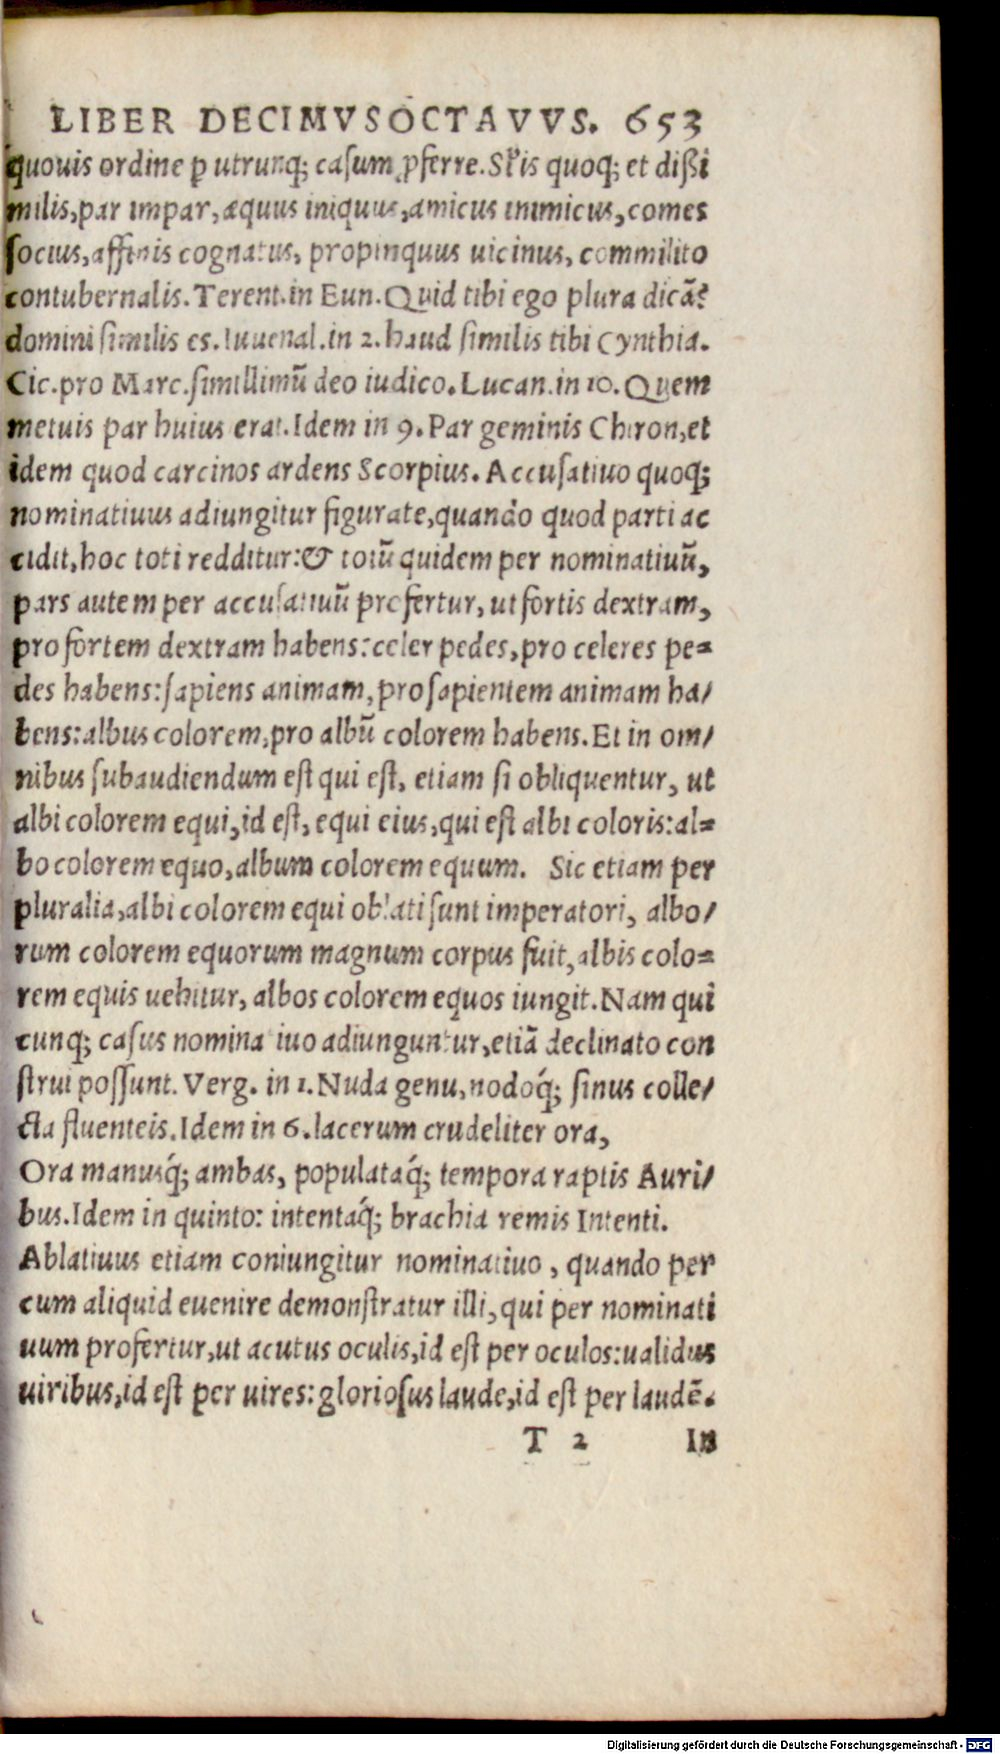 LIBER DECIMVSOCTAVVS. 653
quouis ordine ꝑ utrunq; casum ꝓferre. Sĩis quoq; et dißi
milis, par impar, æquus iniquus, amicus inimicus, comes
socius, affinis cognatus, propinquus uicinus, commilito
contubernalis. Terent. in Eun. Quid tibi ego plura dicã?
domini similis es. Iuuenal. in 2. haud similis tibi Cynthia.
Cic. pro Marc. simillimũ deo iudico. Lucan. in 10. Quem
metuis par huius erat. Idem in 9. Par geminis Chiron, et
idem quod carcinos ardens Scorpius. Accusatiuo quoq;
nominatiuus adiungitur figurate, quando quod parti ac
cidit, hoc toti redditur: & totũ quidem per nominatiuũ,
pars autem per accusatiuũ profertur, ut fortis dextram,
pro fortem dextram habens: celer pedes, pro celeres pe=
des habens: sapiens animam, pro sapientem animam ha/
bens: albus colorem, pro albũ colorem habens. Et in om/
nibus subaudiendum est qui est, etiam si obliquentur, ut
albi colorem equi, id est, equi eius, qui est albi coloris: al=
bo colorem equo, album colorem equum. Sic etiam per
pluralia, albi colorem equi oblati sunt imperatori, albo/
rum colorem equorum magnum corpus fuit, albis colo=
rem equis uehitur, albos colorem equos iungit. Nam qui
cunq; casus nominatiuo adiunguntur, etiã declinato con
strui possunt. Verg. in 1. Nuda genu, nodoq́; sinus colle/
cta fluenteis. Idem in 6. lacerum crudeliter ora,
Ora manusq́; ambas, populataq́; tempora raptis Auri/
bus. Idem in quinto: intentaq́; brachia remis Intenti.
Ablatiuus etiam coniungitur nominatiuo, quando per
eum aliquid euenire demonstratur illi, qui per nominati
uum profertur, ut acutus oculis, id est per oculos: ualidus
uiribus, id est per uires: gloriosus laude, id est per laudẽ.
T 2 In
Digitalisierung gefördert durch die Deutsche Forschungsgemeinschaft - DFG